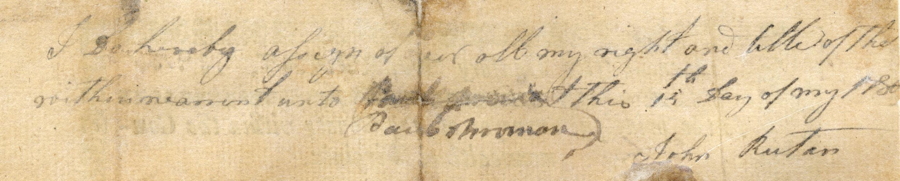 I Do hereby assign over all my right and title of the
within warrant unto this 15th Day of my
John Rutan